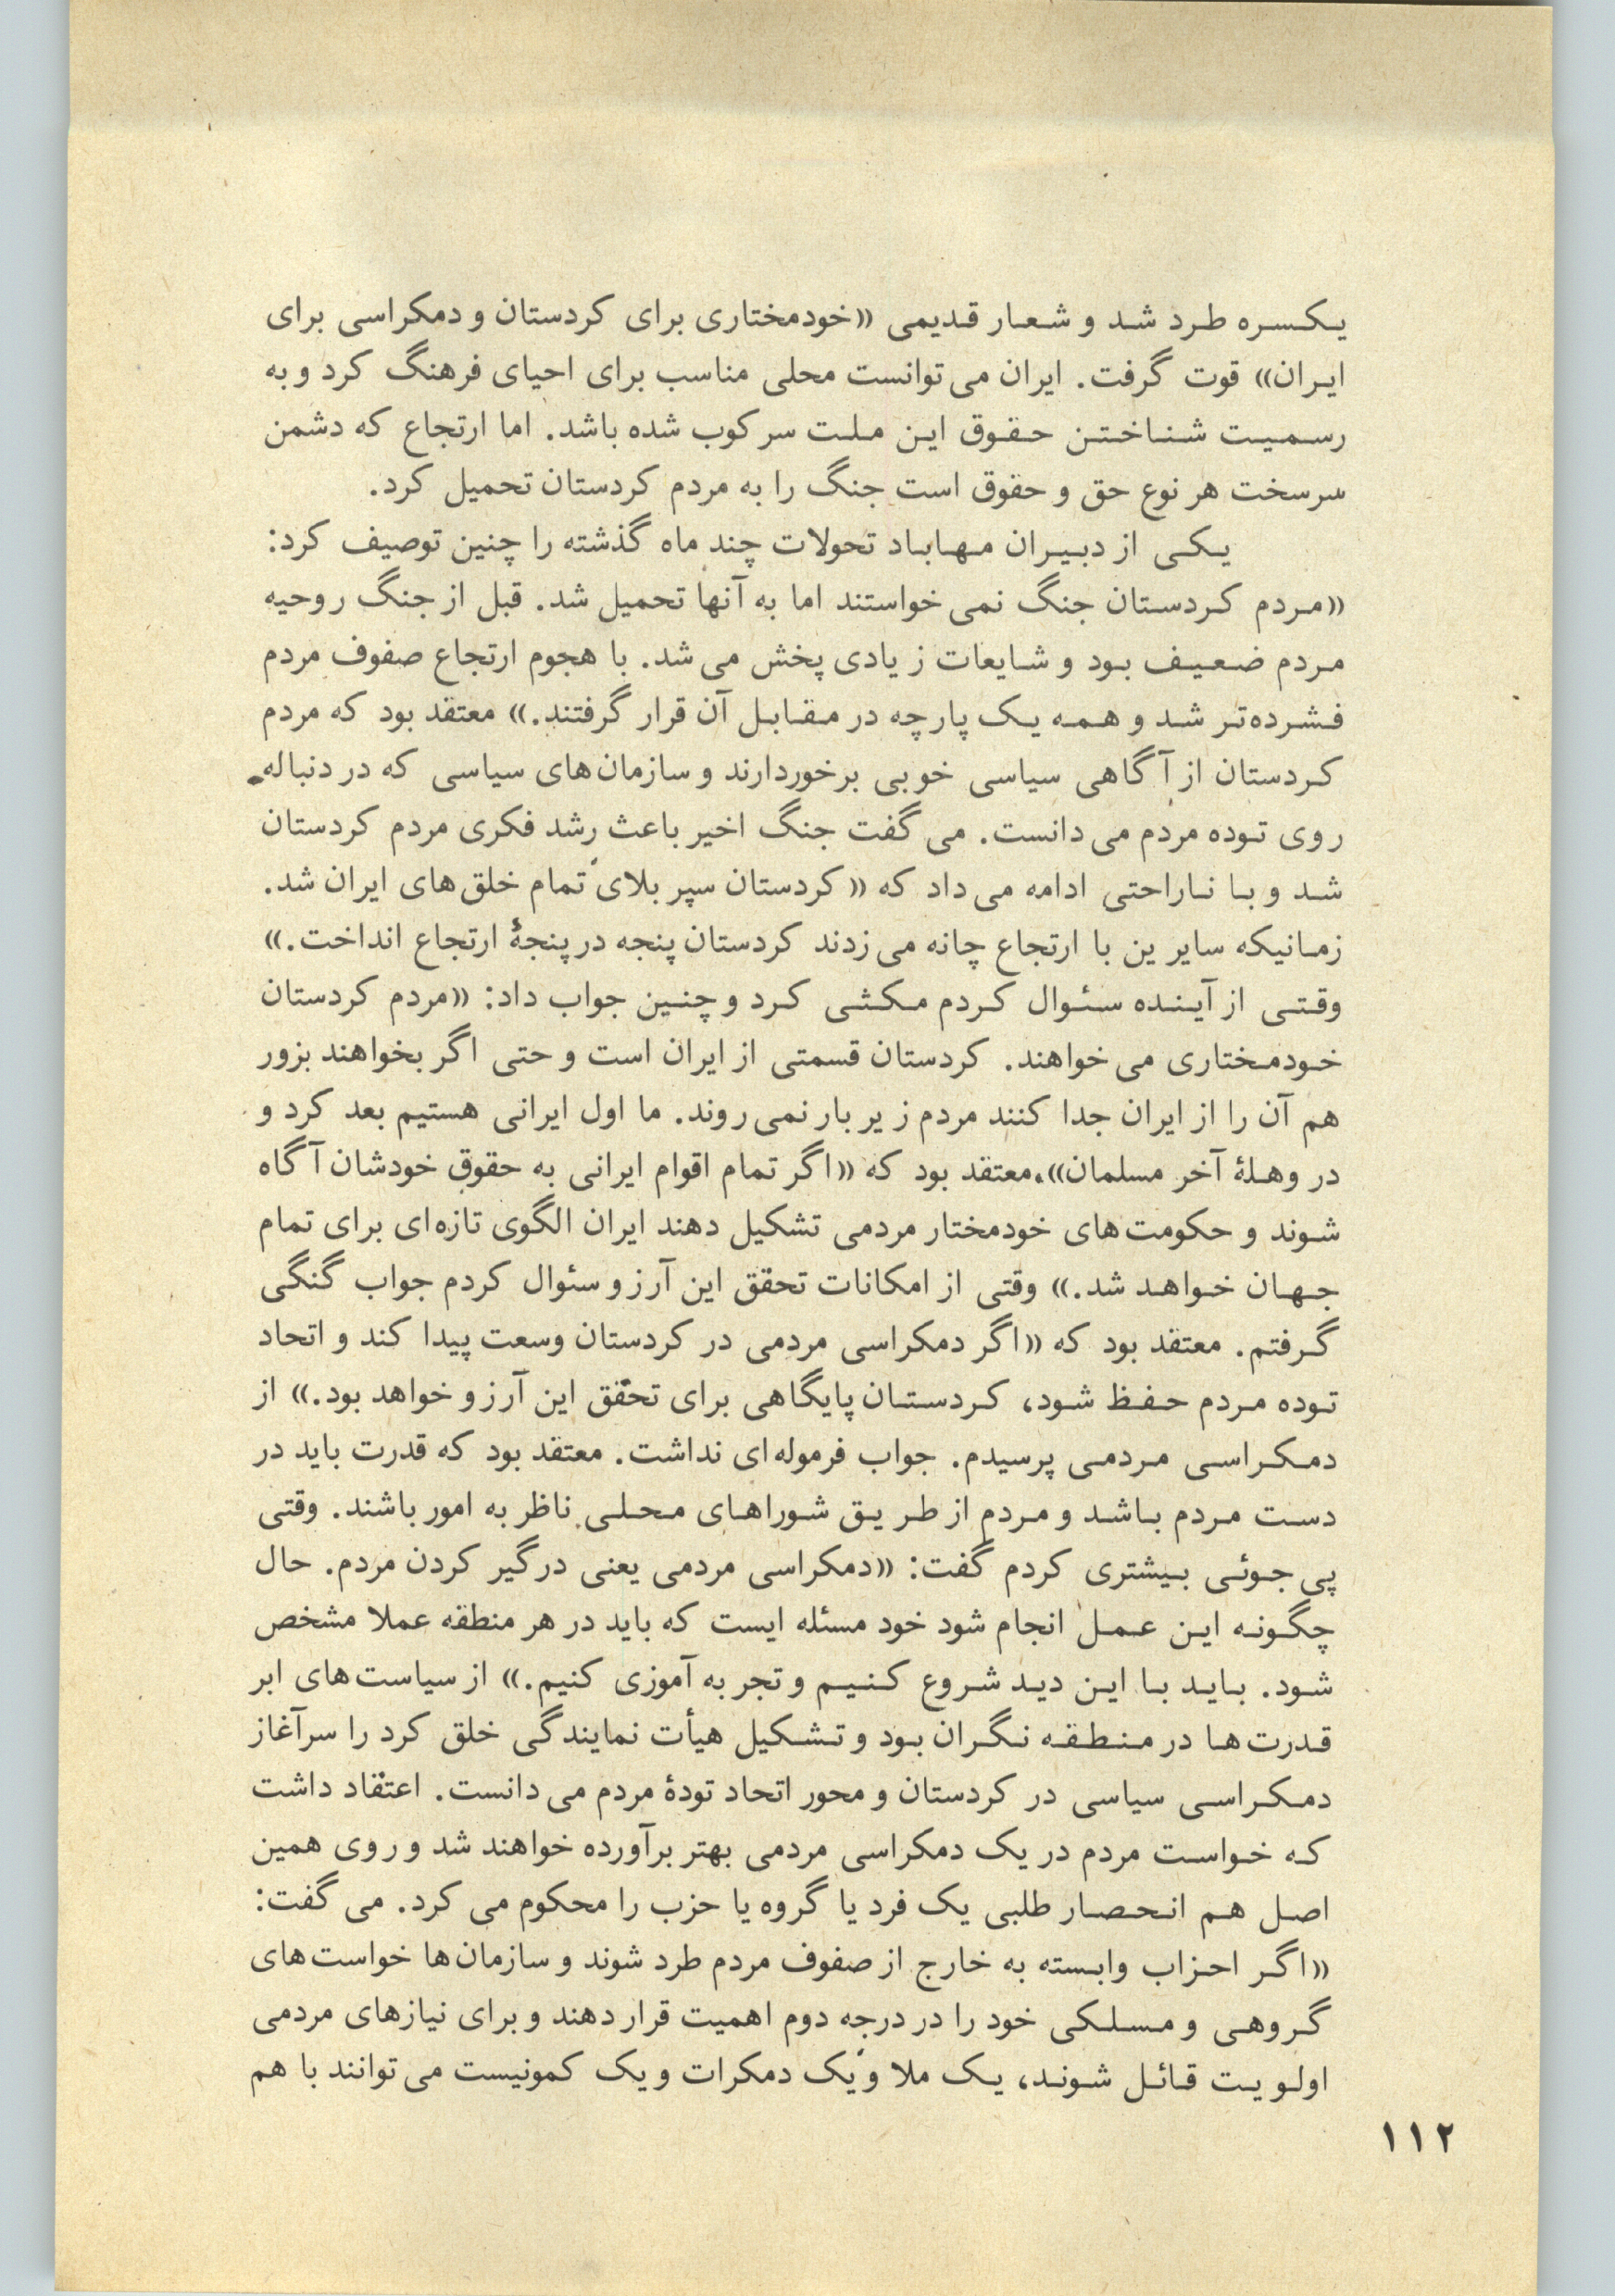 یکسره طرد شد و شعار قدیمی «خودمختاری برای کردستان و دمکراسی برای
ایران» قوت گرفت. ایران می‌توانست محلی مناسب برای احیای فرهنگ کرد و به
رسمیت شناختن حقوق این ملت سرکوب شده باشد. اما ارتجاع که دشمن
سرسخت هر نوع حق و حقوق است جنگ را به مردم کردستان تحمیل کرد.
یکی از دبیران مهاباد تحولات چند ماه گذشته را چنین توصیف کرد:
«مردم کردستان جنگ نمی‌خواستند اما به آنها تحمیل شد. قبل از جنگ روحیه
مردم ضعیف بود و شایعات زیادی پخش می‌شد. با هجوم ارتجاع صفوف مردم
فشرده‌تر شد و همه یک پارچه در مقابل آن قرار گرفتند.» معتقد بود که مردم
کردستان از آگاهی سیاسی خوبی برخوردارند و سازمان‌های سیاسی که در دنباله
روی توده مردم می‌دانست. می‌گفت جنگ اخیر باعث رشد فکری مردم کردستان
شد و با ناراحتی ادامه می‌داد که «کردستان سپر بلای تمام خلق‌های ایران شد.
زمانیکه سایرین با ارتجاع چانه می‌زدند کردستان پنجه در پنجهٔ ارتجاع انداخت.»
وقتی از آینده سئوال کردم مکثی کرد و چنین جواب داد: «مردم کردستان
خودمختاری می‌خواهند. کردستان قسمتی از ایران است و حتی اگر بخواهند بزور
هم آن را از ایران جدا کنند مردم زیر بار نمی‌روند. ما اول ایرانی هستیم بعد کرد و
در وهلهٔ آخر مسلمان».معتقد بود که «اگر تمام اقوام ایرانی به حقوق خودشان آگاه
شوند و حکومت‌های خودمختار مردمی تشکیل دهند ایران الگوی تازه‌ای برای تمام
جهان خواهد شد.» وقتی از امکانات تحقق این آرزو سئوال کردم جواب گنگی
گرفتم. معتقد بود که «اگر دمکراسی مردمی در کردستان وسعت پیدا کند و اتحاد
توده مردم حفظ شود، کردستان پایگاهی برای تحقق این آرزو خواهد بود.» از
دمکراسی مردمی پرسیدم. جواب فرموله‌ای نداشت. معتقد بود که قدرت باید در
دست مردم باشد و مردم از طریق شوراهای محلی ناظر به امور باشند. وقتی
پی‌جوئی بیشتری کردم گفت: «دمکراسی مردمی یعنی درگیر کردن مردم. حال
چگونه این عمل انجام شود خود مسئله ایست که باید در هر منطقه عملا مشخص
شود. باید با این دید شروع کنیم و تجربه آموزی کنیم.» از سیاست‌های ابر
قدرت‌ها در منطقه نگران بود و تشکیل هیأت نمایندگی خلق کرد را سرآغاز
دمکراسی سیاسی در کردستان و محور اتحاد تودهٔ مردم می‌دانست. اعتقاد داشت
که خواست مردم در یک دمکراسی مردمی بهتر برآورده خواهند شد و روی همین
اصل هم انحصار طلبی یک فرد یا گروه یا حزب را محکوم می‌کرد. می‌گفت:
«اگر احزاب وابسته به خارج از صفوف مردم طرد شوند و سازمان‌ها خواست‌های
گروهی و مسلکی خود را در درجه دوم اهمیت قرار دهند و برای نیازهای مردمی
اولویت قائل شوند، یک ملا و یک دمکرات و یک کمونیست می‌توانند با هم
۱۱۲